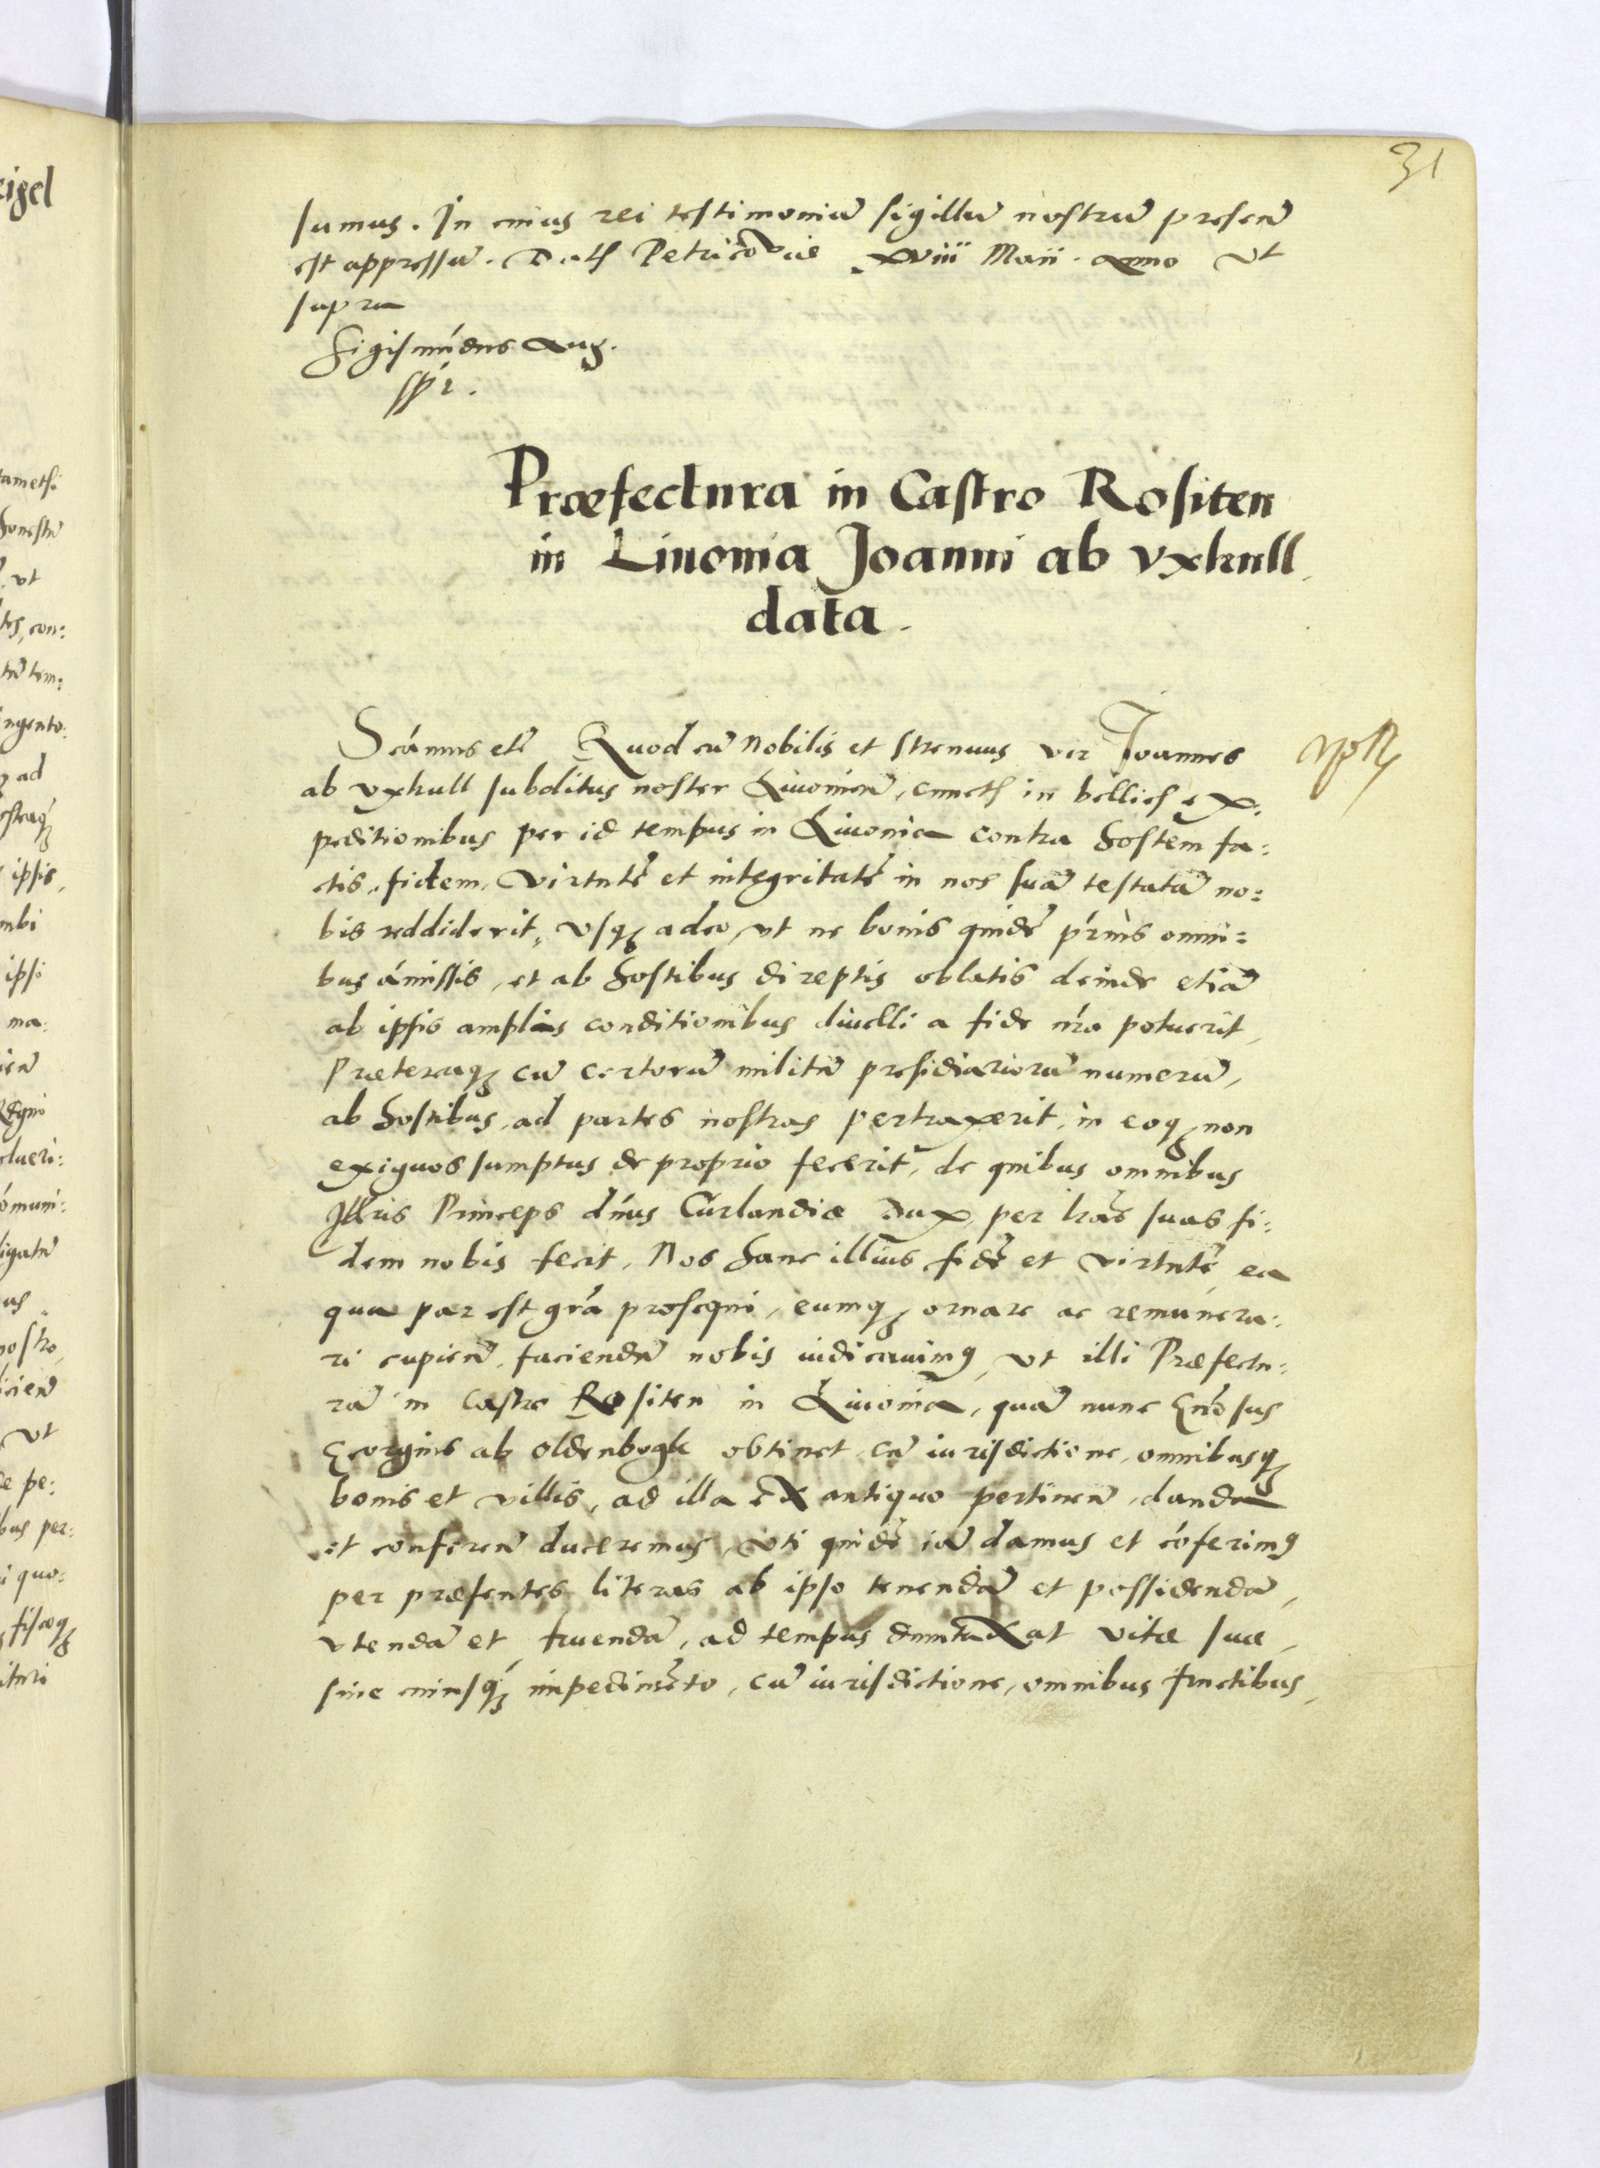 31
sumus. In cuius rei testimoniũ sigillũ nostrũ presen̄
est appressũ. Dat͠ Petricoviæ xviii Maii. Anno ut
supra
Sigismũdus Aug.
Præfectura in Castro Rositen
in Liuonia Joanni ab Vxkull
data.
Quod cũ Nobilis et strenuus vir Joannes
ab Vxkull subditus noster Liuonien̄, cunct͠ in bellic͠ ex-
peditionibus per id tempus in Liuonia contra hostem fa:
ctis, fidem, virtutẽ et integritatẽ in nos suã testatã no:
bis reddiderit, usq; adeo, ut ne bonis quidẽ p̃rijs omni:
bus ámissis, et ab hostibus direptis oblatis deinde etiã
ab ipsis amplis conditionibus diuelli a fide nr̃a potuerit,
Prætereaq; cũ certorũ militũ presidiariorũ numerũ,
ab hostibus, ad partes nostras pertraxerit, in eoq; non
exiguos sumptus de proprio fecerit, de quibus omnibus
Illris Princeps dñus Curlandiæ Dux per lr̃as suas fi:
dem nobis fecit, Nos hanc illius fidẽ et virtutẽ ea
qua par est gr̃a prosequi, eumq; ornare ac remunera:
ri cupien̄, faciendũ nobis iudicauimꝰ, ut illi Præfectu:
rã in Castro Rositen in Liuonia, quã nunc Gñosus
Georgius ab Oldenbogk obtinet cũ iurisdictione, omnibusq;
bonis et villis, ad illa ex antiquo pertinen̄, dandam
et conferen̄ duceremus, uti quidẽ iã damus et cõferimꝰ
per præsentes literas ab ipso tenendã et possidendã,
utendã et fruendã, ad tempus duntaxat vitæ suæ,
sine cuiusq; impedimẽto, cũ iurisdictione, omnibus fructibus,